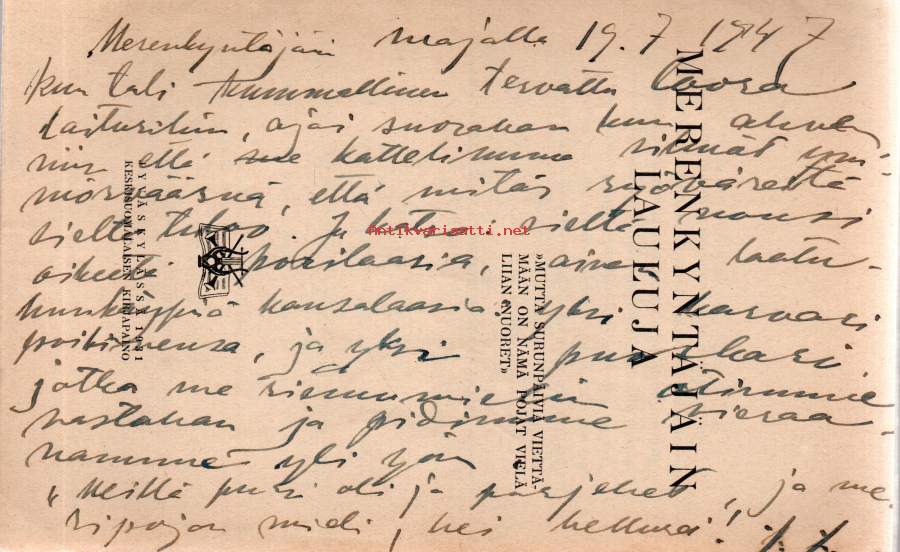 Merenkyntäjäin majalla 19.7 1947
kun tuli kummallinen tervattu
laiturihin, ajoi suorahan kun ahven
niin että me kattelimma silmät ym-
, että mitäs
sieltä tuloo. Ja kattos sieltä nousi
oikeita porilaasia, aivan laatu-
kansalaasia. yksi
, ja yksi
jotka me riemumielin otimme
vastahan ja pidimme vieraa-
namme yli yön
"Meillä pursi oli ja purjehet, ja me-
ripojan mieli, hei
MERENKYNTÄJÄIN
LAULUJA
»MUTTA SURUNPÄIVIÄ VIETTÄ-
MÄÄN ON NÄMÄ POJAT VIELÄ
LIIAN NUORET»
JYVÄSKYLÄSSÄ 1931
KESKISUOMALAISEN KIRJAPAINO
Antikvariaatti.net